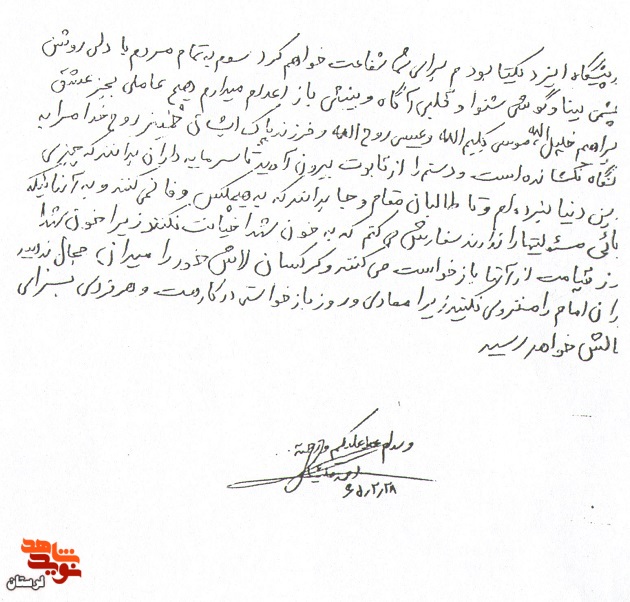 پیشگاه ایزد یکتا بودم برای شما شفاعت خواهم کرد سوم به تمام مردم با دلی روشن
چشمی بینا و گوشی شنوا و قلبی آگاه و بینشی باز اعلام میدارم هیچ عاملی بجز عشق
براهیم خلیل الله موسی کلیم الله و عیسی روح الله و فرزند پاک ایشان خمینی روح خدا مرا به
نگاه نکشانده است و دستم را از تابوت بیرون آورید تا سرمایه داران بدانند که چیزی
زین دنیا نبرده ام و تا طالبان مقام و جا بدانند که به هیچکس وفا نمی کند و به آنانیکه
بائی مسئولیتها را ندارند سفارش می کنم که به خون شهدا خیانت نکنند زیرا خون شهدا
رز قیامت از آنها بازخواست می کنند و کرکسان لاش خور را میدان جمال ندهید
ران امام را منزوی نکنید زیرا معادی و روز بازخواستی در کار است و هر فردی بسزای
مالش خواهد رسید
والسلام علیکم و رحمة
۶۵٫۲٫۲۸
نوید شاهد
لرستان